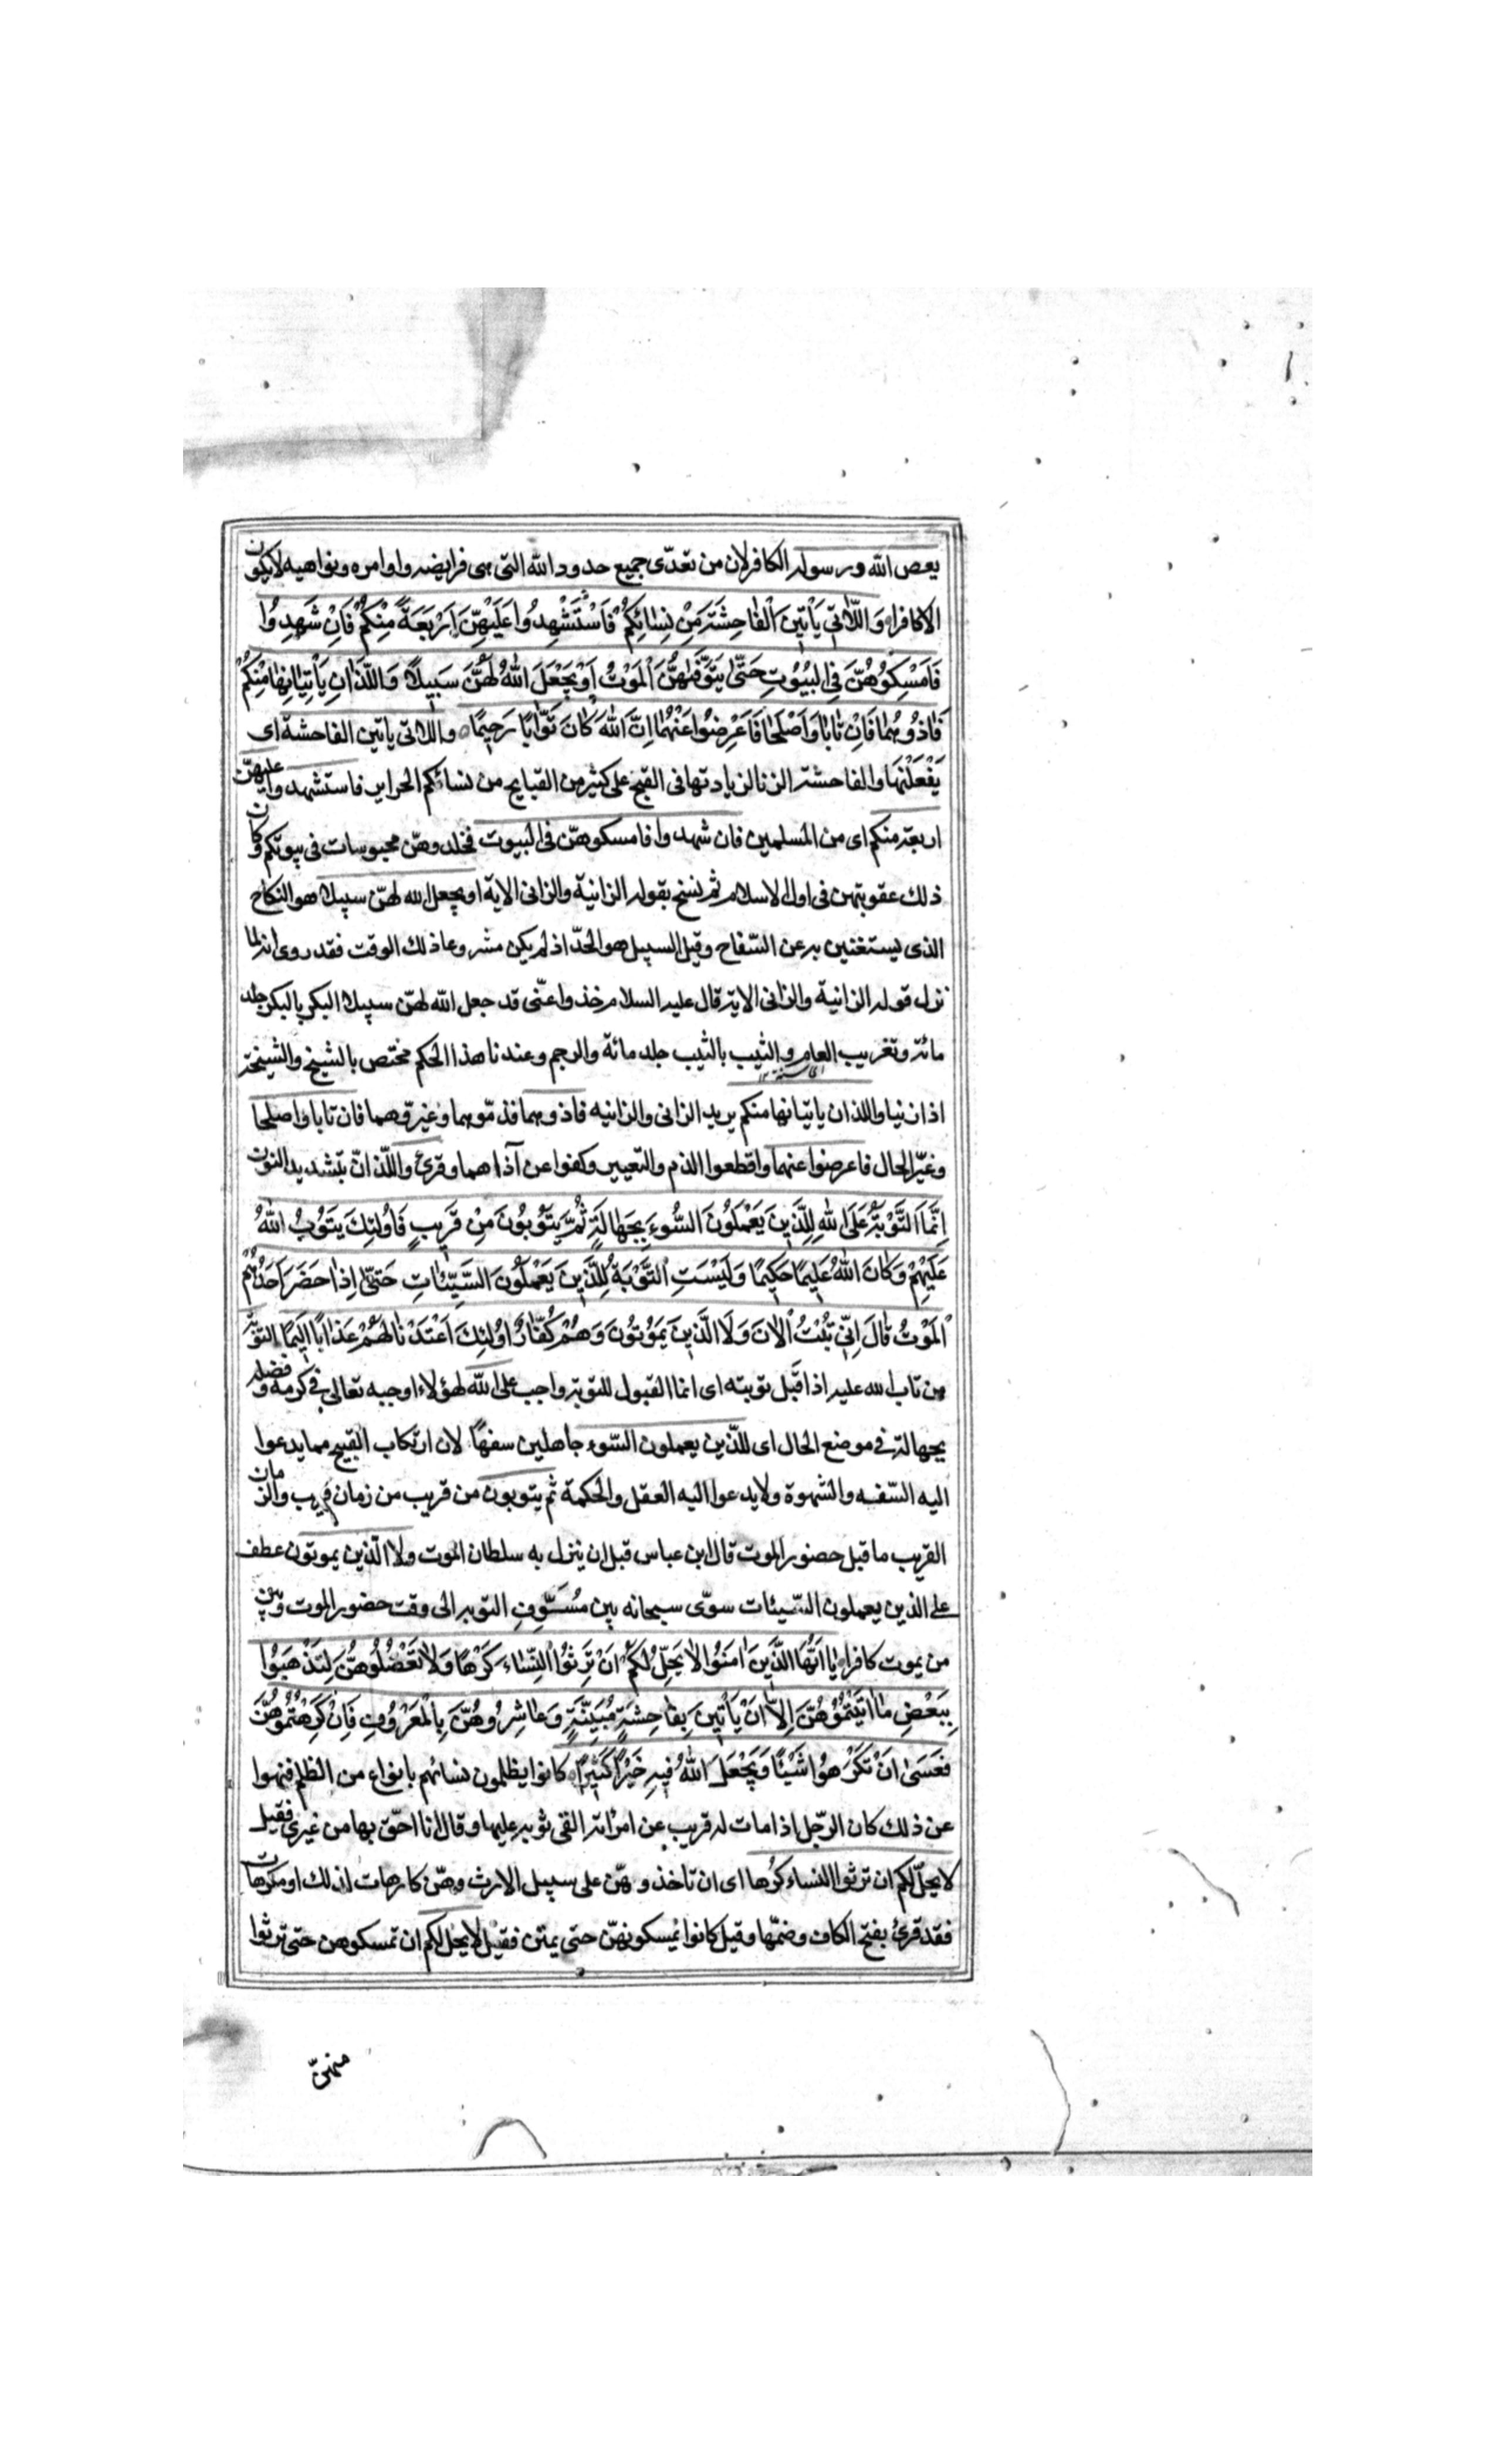 يعص الله ورسوله الكافر لان من تعدّى جميع حدود الله التى هى فرايضه واوامره ونواهيه لايكون
الا كافرا وَاللّاتِي يَأْتِينَ الْفَاحِشَةَ مِنْ نِسَائِكُمْ فَاسْتَشْهِدُوا عَلَيْهِنَّ اَرْبَعَةً مِنْكُمْ فَاِنْ شَهِدُوا
فَاَمْسِكُوهُنَّ فِي الْبُيُوتِ حَتّىٰ يَتَوَفّٰهُنَّ الْمَوْتُ اَوْ يَجْعَلَ اللهُ لَهُنَّ سَبِيلًا وَاللَّذَانِ يَأْتِيَانِهَا مِنْكُمْ
فَاٰذُوهُمَا فَاِنْ تَابَا وَاَصْلَحَا فَاَعْرِضُوا عَنْهُمَا اِنَّ اللهَ كَانَ تَوَّابًا رَحِيمًا واللاتى ياتين الفاحشة اى
يَفْعَلْنَهَا والفاحشة الزنا لزيادتها فى القبح على كثير من القبايح من نسائكم الحراير فاستشهدوا عليهنّ
اربعة منكم اى من المسلمين فان شهدوا فامسكوهنّ فى البيوت فخلدوهنّ محبوسات فى بيوتكم وكان
ذلك عقوبتهن فى اول الاسلام ثم نسخ بقوله الزانية والزانى الاية او يجعل الله لهنّ سبيلا هو النكاح
الذى يستغنين به عن السّفاح وقيل السبيل هو الحدّ اذ لم يكن مشروعا ذلك الوقت فقد روى انه لما
نزل قوله الزانية والزانى الاية قال عليه السلام خذوا عنّى قد جعل الله لهنّ سبيلا البكر بالبكر جلد
مائة وتغريب العام والثيب بالثيب جلد مائة والرجم وعندنا هذا الحكم مختص بالشيخ والشيخة
اذا زنيا واللذان ياتيانها منكم يريد الزانى والزانيه فاذوهما فذمّوهما وعيّروهما فان تابا واصلحا
وغيّر الحال فاعرضوا عنهما واقطعوا الذم والتعيير وكفوا عن آذاهما وقرئ واللّذانّ بتشديد النون
اِنَّمَا التَّوْبَةُ عَلَى اللهِ لِلَّذِينَ يَعْمَلُونَ السُّوءَ بِجَهَالَةٍ ثُمَّ يَتُوبُونَ مِنْ قَرِيبٍ فَاُولٰئِكَ يَتُوبُ اللهُ
عَلَيْهِمْ وَكَانَ اللهُ عَلِيمًا حَكِيمًا وَلَيْسَتِ التَّوْبَةُ لِلَّذِينَ يَعْمَلُونَ السَّيِّئَاتِ حَتّىٰ اِذَا حَضَرَ اَحَدَهُمُ
الْمَوْتُ قَالَ اِنِّي تُبْتُ الْاٰنَ وَلَا الَّذِينَ يَمُوتُونَ وَهُمْ كُفَّارٌ اُولٰئِكَ اَعْتَدْنَا لَهُمْ عَذَابًا اَلِيمًا التوبة
من تاب الله عليه اذا قبل توبته اى انما القبول للتوبة واجب على الله لهؤلاء اوجبه تعالى فى كرمه وفضله
بجهالة فى موضع الحال اى للذين يعملون السّوء جاهلين سفهًا لان ارتكاب القبيح مما يدعوا
اليه السّفه والشهوة ولا يدعوا اليه العقل والحكمة ثم يتوبون من قريب من زمان قريب والزمان
القريب ما قبل حضور الموت قال ابن عباس قبل ان ينزل به سلطان الموت ولا الّذين يموتون عطف
على الذين يعملون السّيئات سوّى سبحانه بين مُسَوِّفِ التوبة الى وقت حضور الموت وبين
من يموت كافرا يَا اَيُّهَا الَّذِينَ اٰمَنُوا لَا يَحِلُّ لَكُمْ اَنْ تَرِثُوا النِّسَاءَ كَرْهًا وَلَا تَعْضُلُوهُنَّ لِتَذْهَبُوا
بِبَعْضِ مَا اٰتَيْتُمُوهُنَّ اِلَّا اَنْ يَأْتِينَ بِفَاحِشَةٍ مُبَيِّنَةٍ وَعَاشِرُوهُنَّ بِالْمَعْرُوفِ فَاِنْ كَرِهْتُمُوهُنَّ
فَعَسَىٰ اَنْ تَكْرَهُوا شَيْئًا وَيَجْعَلَ اللهُ فِيهِ خَيْرًا كَثِيرًا كانوا يظلمون نسائهم بانواع من الظلم فنهوا
عن ذلك كان الرّجل اذا مات له قريب عن امرأة القى ثوبه عليها وقال انا احقّ بها من غيرى فقيل
لا يحلّ لكم ان ترثوا النساء كرُها اى ان تاخذوهنّ على سبيل الارث وهنّ كارهات لذلك او مكرهات
فقد قرئ بفتح الكاف وضمّها وقيل كانوا يمسكونهنّ حتى يمتن فقيل لا يحل لكم ان تمسكوهن حتى ترثوا
منهنّ